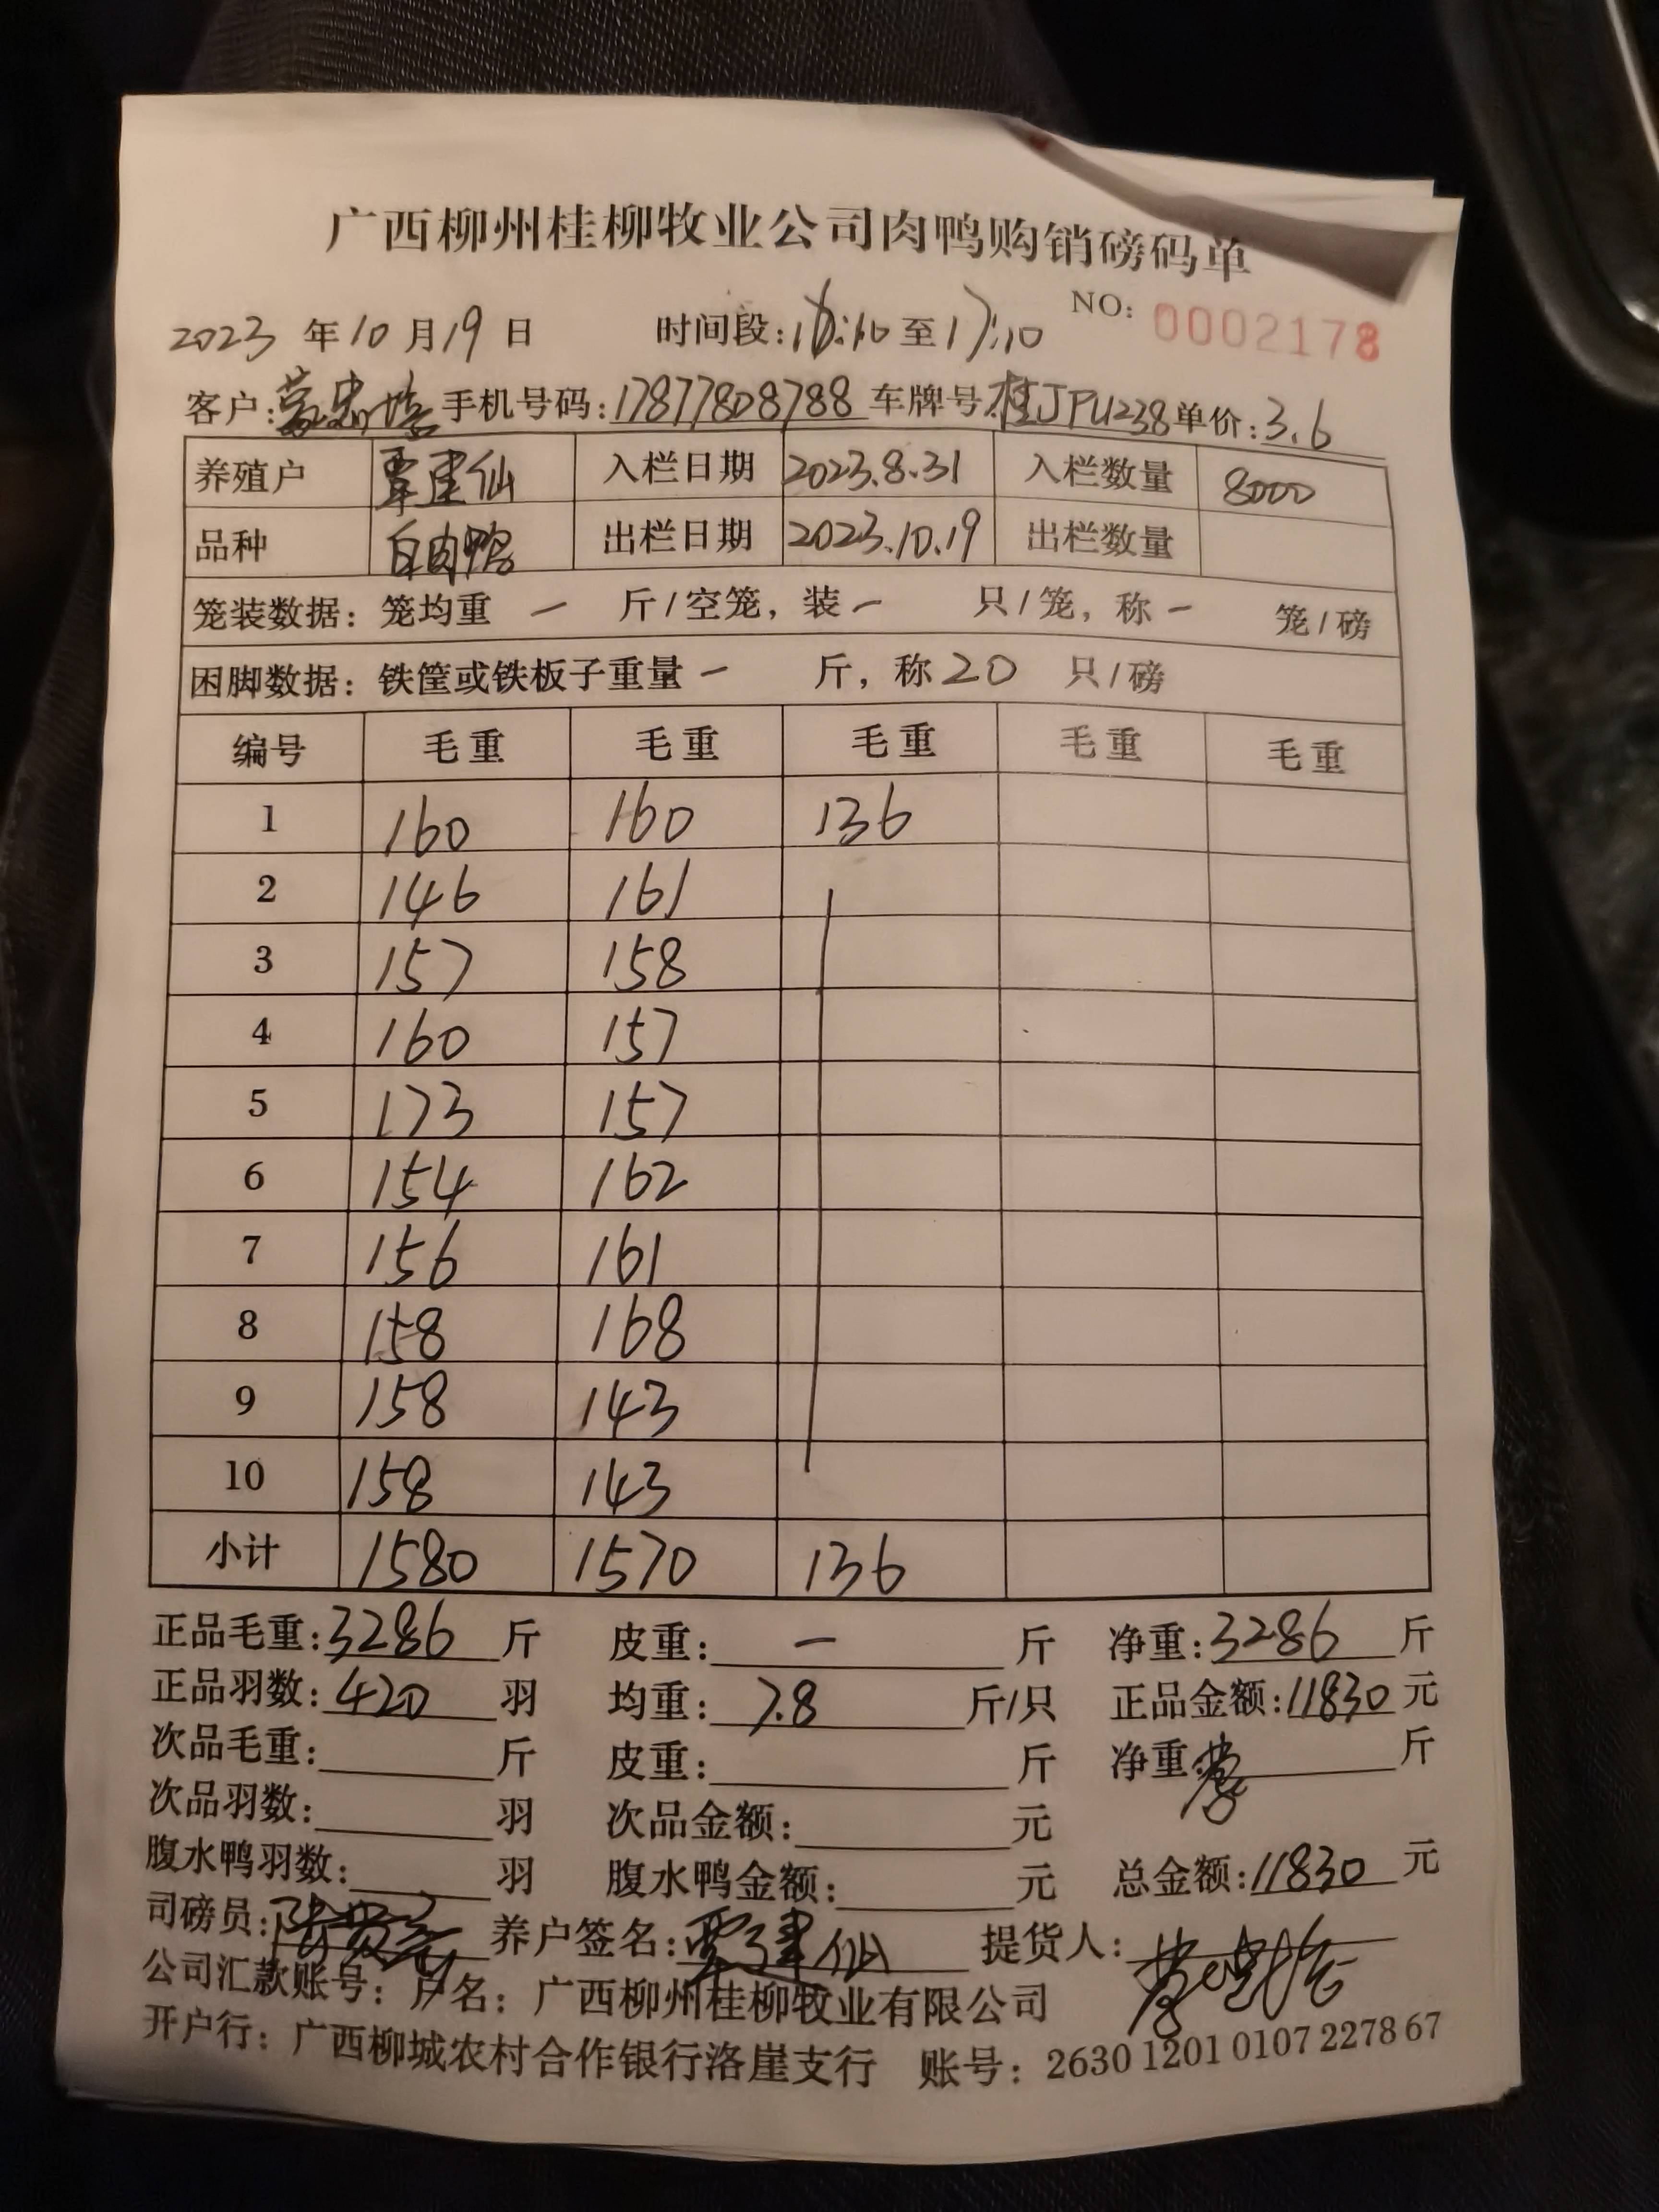 广西柳州桂柳牧业公司肉鸭购销磅码单
NO: 0002178
2023 年 10 月 19 日 时间段: 16:10 至 17:10
客户: 手机号码: 17877808788 车牌号: 桂JPU238 单价: 3.6
养殖户 覃建仙 入栏日期 2023.8.31 入栏数量 8000
品种 白肉鸭 出栏日期 2023.10.19 出栏数量
笼装数据: 笼均重 — 斤/空笼, 装 — 只/笼, 称 — 笼/磅
困脚数据: 铁筐或铁板子重量 — 斤, 称 20 只/磅
编号 毛重 毛重 毛重 毛重 毛重
1 160 160 136
2 146 161
3 157 158
4 160 157
5 173 157
6 154 162
7 156 161
8 158 168
9 158 143
10 158 143
小计 1580 1570 136
正品毛重: 3286 斤 皮重: — 斤 净重: 3286 斤
正品羽数: 420 羽 均重: 7.8 斤/只 正品金额: 11830 元
次品毛重: 斤 皮重: 斤 净重: 斤
次品羽数: 羽 次品金额: 元
腹水鸭羽数: 羽 腹水鸭金额: 元 总金额: 11830 元
司磅员: 养户签名: 覃建仙 提货人:
公司汇款账号: 户名: 广西柳州桂柳牧业有限公司
开户行: 广西柳城农村合作银行洛崖支行 账号: 2630 1201 0107 2278 67